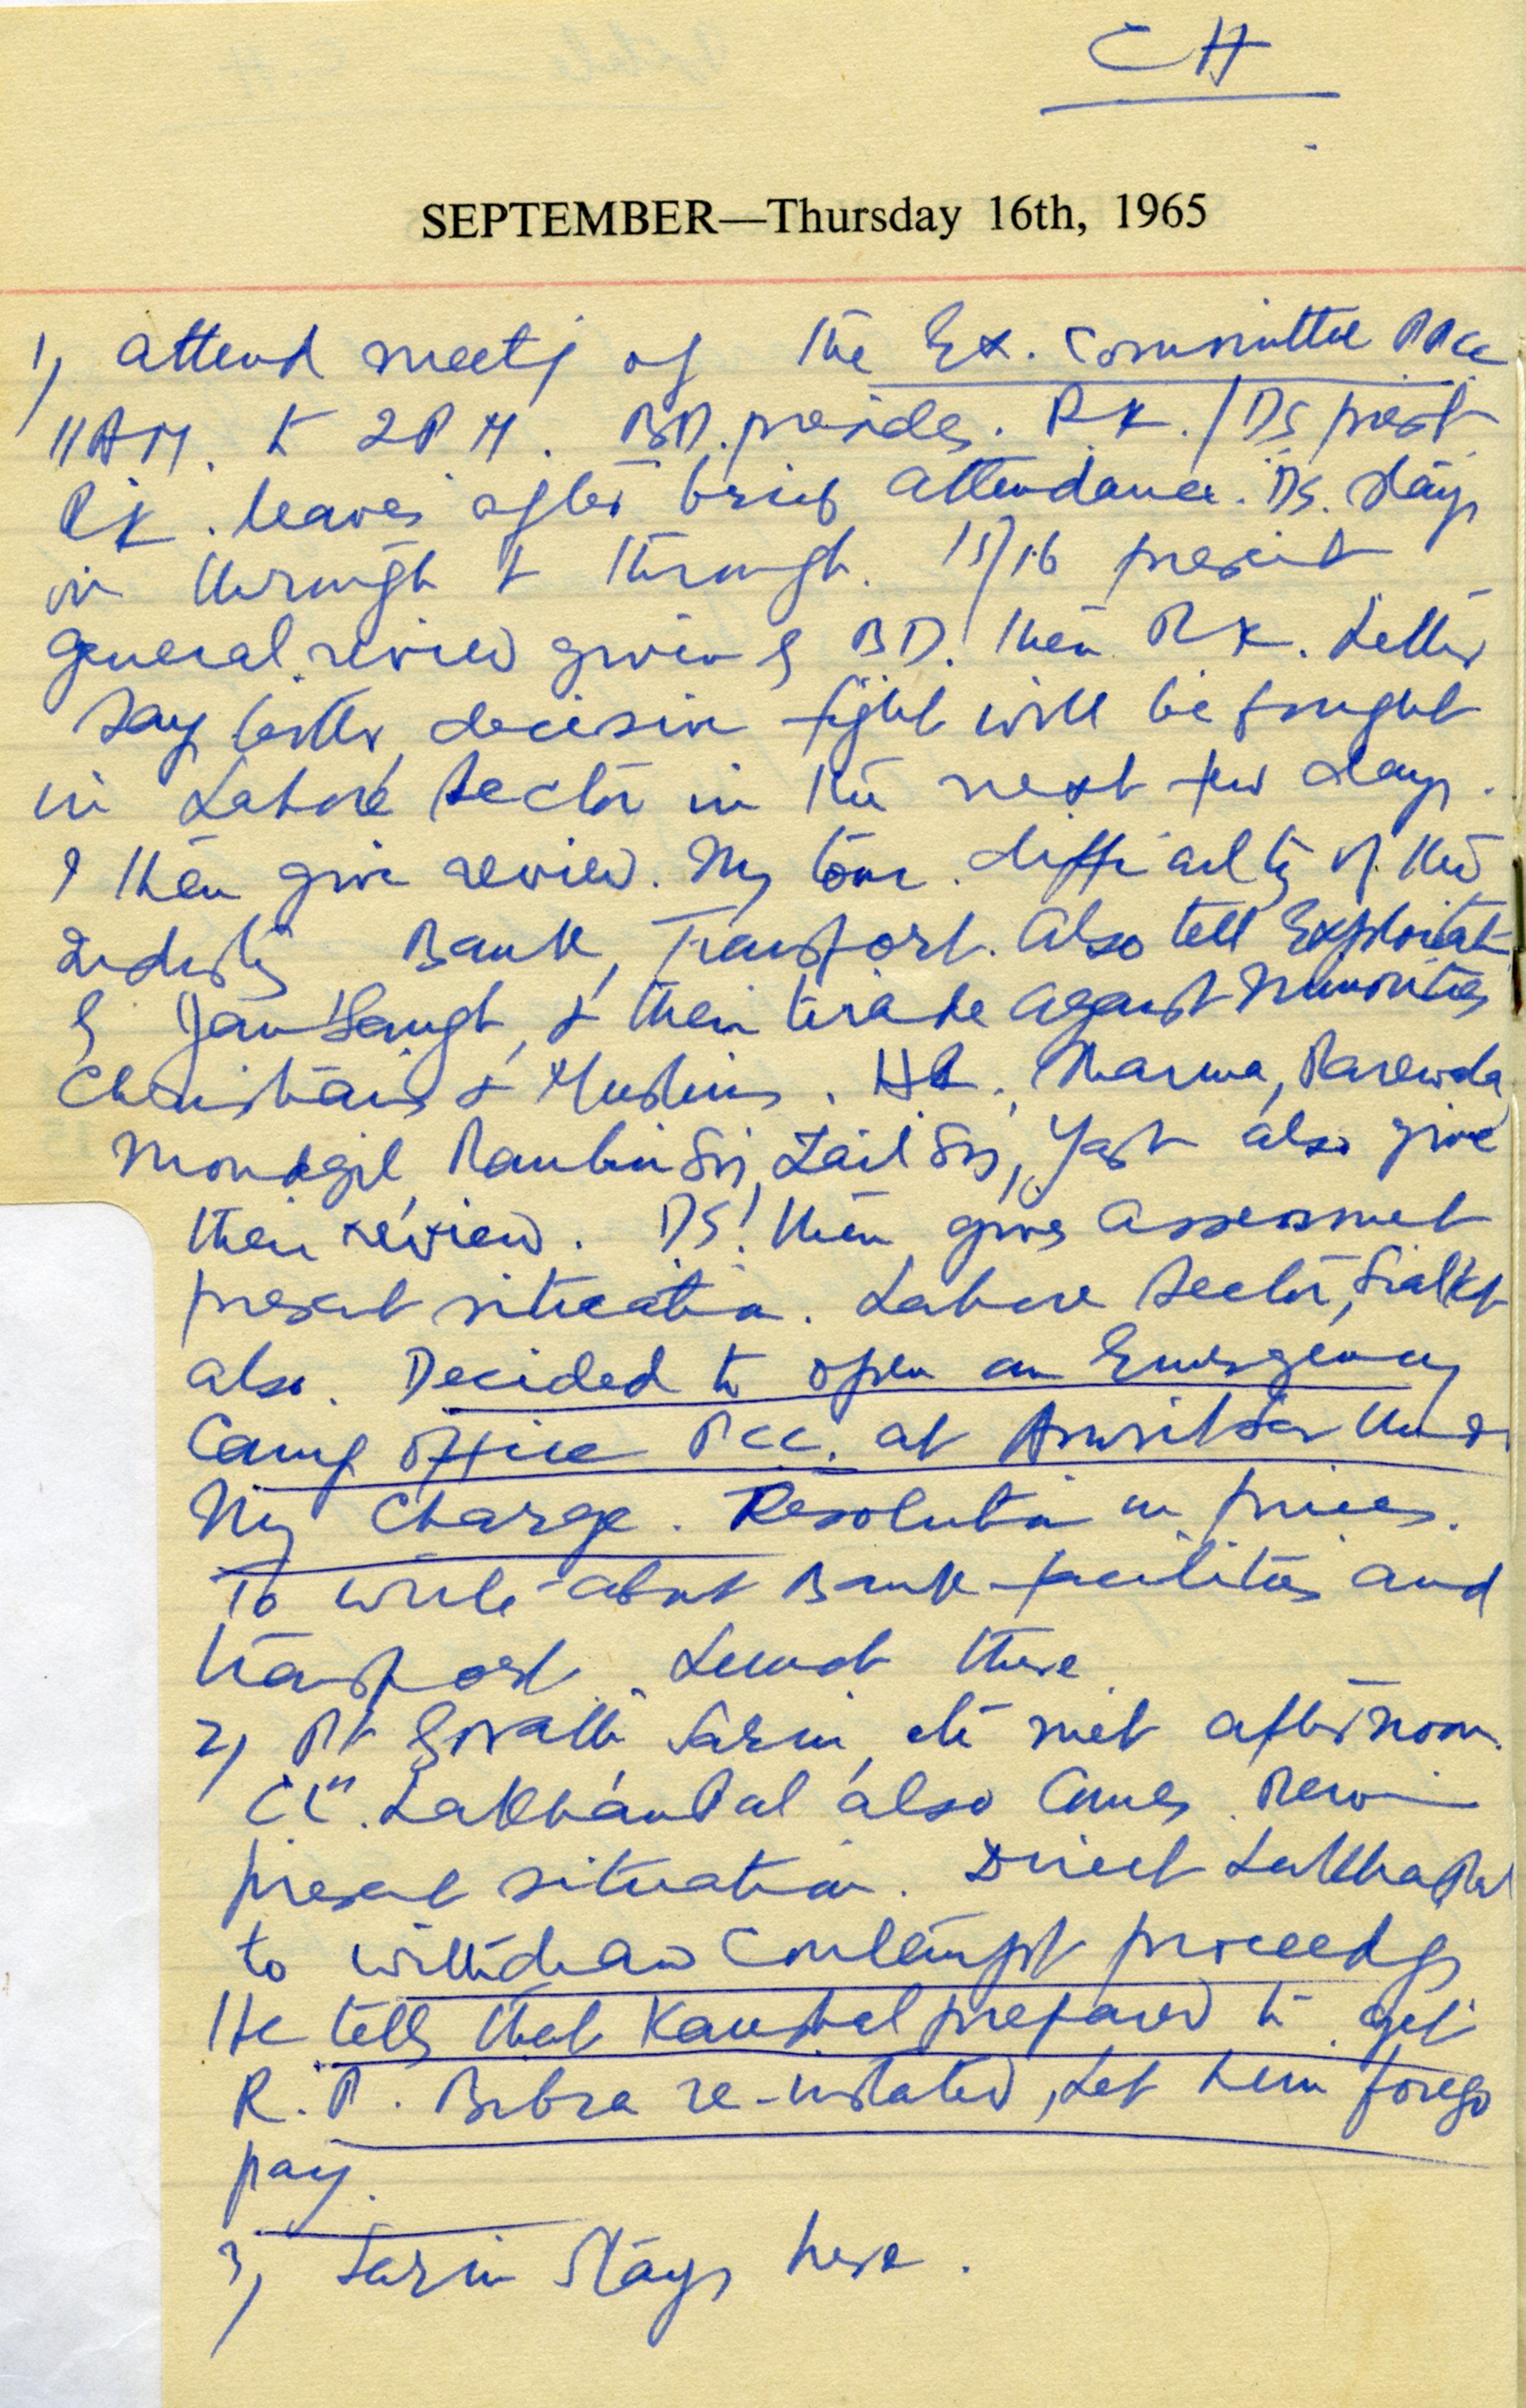 CH
SEPTEMBER—Thursday 16th, 1965
1) attend meetg of the Ex. Committee PCC
11 AM. to 2 PM. BD. presides. RK. / DS prest
RK. leaves after brief attendance. DS. stays
in through & through. 15/16 present
general review given by BD. then RK. Latter
say bitter, decisive fight will be fought
in Lahore Sector in the next few days.
I then give review. My tour. difficulty of the
Industry Bank, Transport. Also tell Exploitat
by Jan Sangh, & their tirade against Minorities
Christians & Muslims. Sharma,
Moudgil, Zail Sg, Yash also give
their review. DS! then gives assessment
present situation. Lahore Sector, Sialkt
also. Decided to open an Emergency
Camp Office PCC. at Amritsar under
My Charge. Resolution on prices.
To write about Bank facilities and
transport. Lunch there
2) Pt Sarin, etc met afternoon.
Lakhanpal also comes. Review
present situation. Direct Lakhanpal
to withdraw Contempt proceedgs
He tells that Kaushal prepared to get
R. P. Bibra re-instated, let him forego
pay.
3) Sarin stays here.